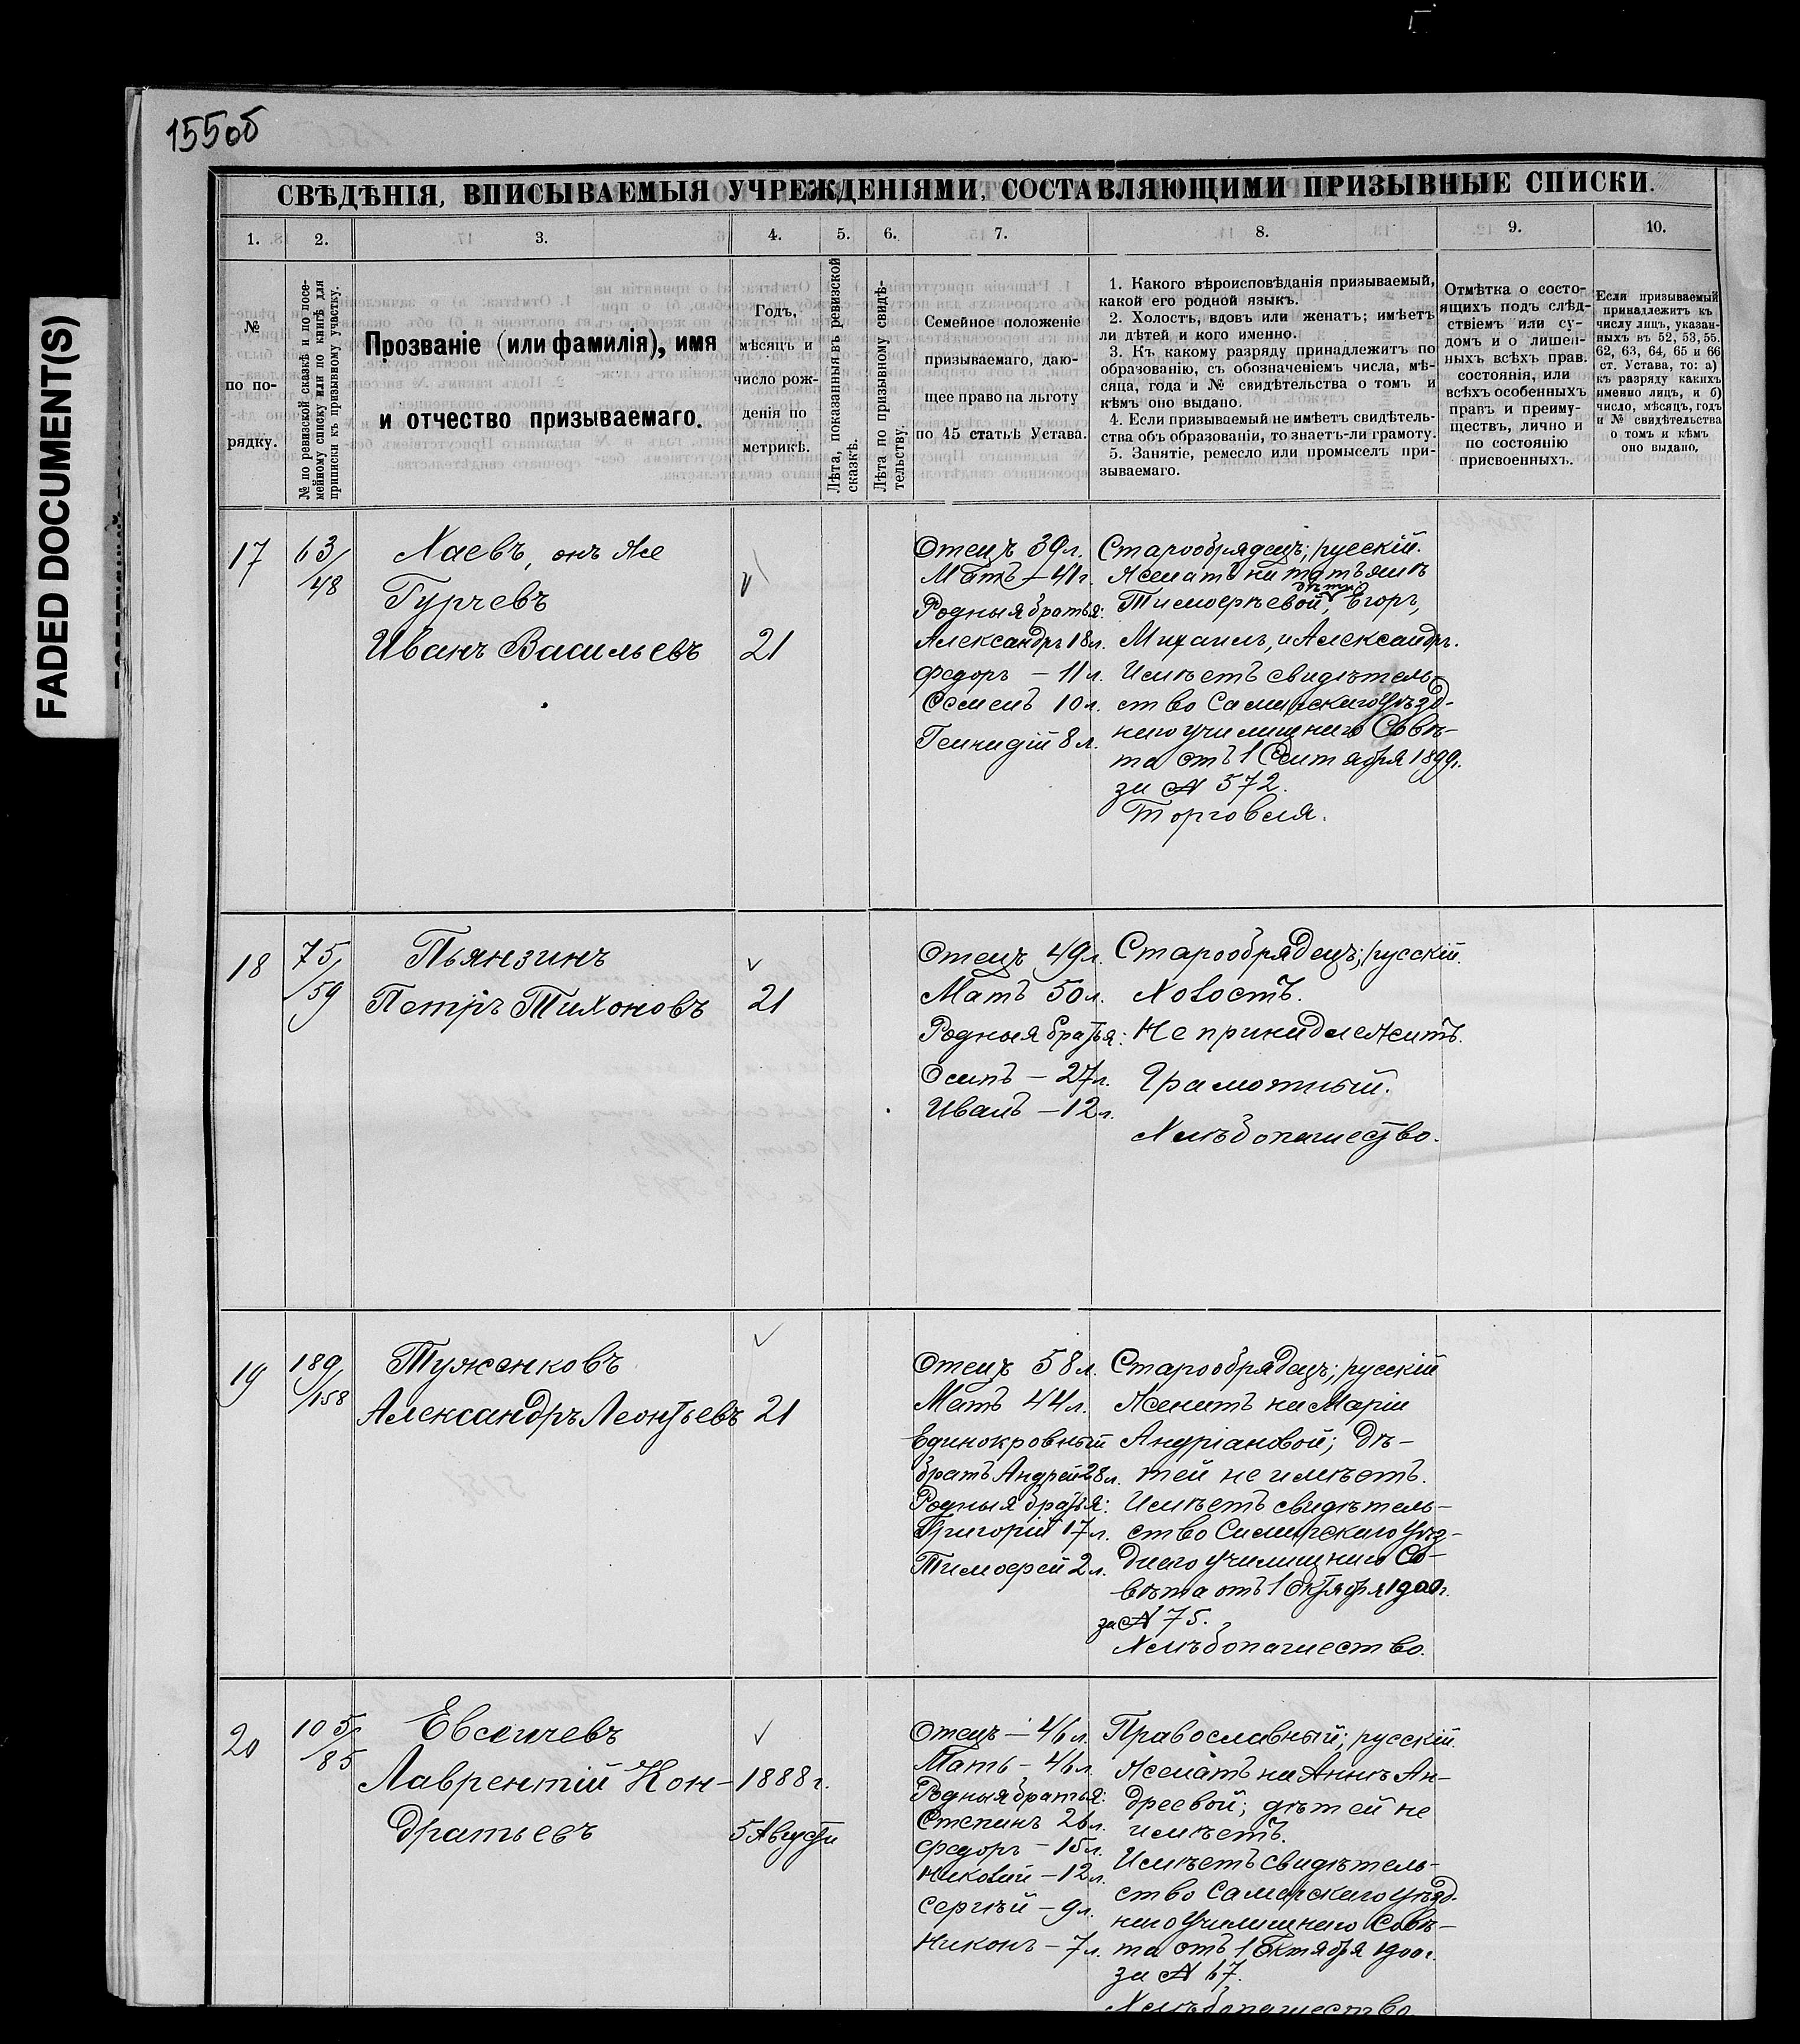 155об
FADED DOCUMENT(S)
СВѢДѢНІЯ, ВПИСЫВАЕМЫЯ УЧРЕЖДЕНІЯМИ, СОСТАВЛЯЮЩИМИ ПРИЗЫВНЫЕ СПИСКИ.
1. 2. 3. 4. 5. 6. 7. 8. 9. 10.
№
по по-
рядку.
№ по ревизской сказкѣ и по посе-
мейному списку или по книгѣ для
приписки къ призывному участку.
Прозваніе (или фамилія), имя
и отчество призываемаго.
Годъ,
мѣсяцъ и
число рож-
денія по
метрикѣ.
Лѣта, показанныя въ ревизской
сказкѣ.
Лѣта по призывному свидѣ-
тельству.
Семейное положеніе
призываемаго, даю-
щее право на льготу
по 45 статьѣ Устава.
1. Какого вѣроисповѣданія призываемый,
какой его родной языкъ.
2. Холостъ, вдовъ или женатъ; имѣетъ
ли дѣтей и кого именно.
3. Къ какому разряду принадлежитъ по
образованію, съ обозначеніемъ числа, мѣ-
сяца, года и № свидѣтельства о томъ и
кѣмъ оно выдано.
4. Если призываемый не имѣетъ свидѣтель-
ства объ образованіи, то знаетъ-ли грамоту.
5. Занятіе, ремесло или промыселъ при-
зываемаго.
Отмѣтка о состо-
ящихъ подъ слѣд-
ствіемъ или су-
домъ и о лишен-
ныхъ всѣхъ прав.
состоянія, или
всѣхъ особенныхъ
правъ и преиму-
ществъ, лично и
по состоянію
присвоенныхъ.
Если призываемый
принадлежитъ къ
числу лицъ, указан-
ныхъ въ 52, 53, 55.
62, 63, 64, 65 и 66
ст. Устава, то: а)
къ разряду какихъ
именно лицъ, и б)
число, мѣсяцъ, годъ
и № свидѣтельства
о томъ и кѣмъ
оно выдано,
17
63/48
Хаевъ, онъ же
Гурчевъ
Иванъ Васильевъ
21
Отецъ 39л.
Мать – 41г.
Родныя братья:
Александръ 18л.
Федоръ – 11л.
Семенъ 10л.
Геннадій 8л.
Старообрядецъ; русскій.
Женатъ на Татьянѣ
дѣти
Тимофѣевой, Егоръ,
Михаилъ, и Александръ.
Имѣетъ свидѣтель-
ство Самарскаго Уѣзд-
наго училищнаго Совѣ-
та отъ 1 Сентября 1899г.
за № 572.
Торговля.
18
75/59
Пьянзинъ
Петръ Тихоновъ
21
Отецъ 49л.
Мать 50л.
Родныя братья:
Осипъ – 27л.
Иванъ – 12л.
Старообрядецъ; русскій.
Холостъ.
Не принадлежитъ.
Грамотный.
Хлѣбопашество.
19
189/158
Туженковъ
Александръ Леонтьевъ
21
Отецъ 58л.
Мать 44л.
Единокровный
братъ Андрей 28л.
Родныя братья:
Григорій 17л.
Тимофей 2л.
Старообрядецъ; русскій
Женатъ на Маріи
Андріановой; дѣ-
тей не имѣетъ.
Имѣетъ свидѣтель-
ство Самарскаго Уѣз-
днаго училищнаго Со-
вѣта отъ 1 Октября 1900г.
за № 75.
Хлѣбопашество.
20
105/85
Евсѣичевъ
Лаврентій Кон-
дратьевъ
1888г.
5 Августа
Отецъ – 46л.
Мать – 46л.
Родныя братья:
Степанъ 26л.
Федоръ – 15л.
Николай – 12л.
Сергѣй – 9л.
Никонъ – 7л.
Православный; русскій.
Женатъ на Аннѣ Ан-
дреевой; дѣтей не
имѣетъ.
Имѣетъ свидѣтель-
ство Самарскаго Уѣзд-
наго Училищнаго Совѣ-
та отъ 1 Октября 1900г.
за № 67.
Хлѣбопашество